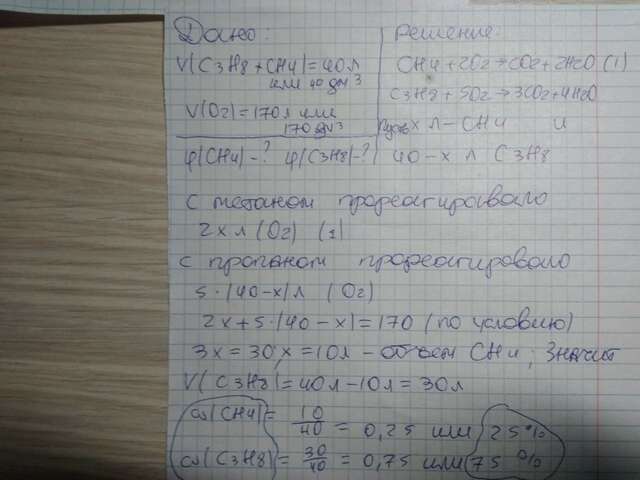 Дано:
V(C3H8 + CH4) = 40 л
или 40 дм3
V(O2) = 170 л или
170 дм3
φ(CH4) - ? φ(C3H8) - ?
Решение:
CH4 + 2O2 → CO2 + 2H2O (1)
C3H8 + 5O2 → 3CO2 + 4H2O
Пусть x л – CH4 и
40 – x л C3H8
С метаном прореагировало
2x л (O2) (1)
с пропаном прореагировало
5 · (40 – x) л (O2)
2x + 5 · (40 – x) = 170 (по условию)
3x = 30; x = 10 л – объём CH4; Значит
V(C3H8) = 40 л – 10 л = 30 л
ω(CH4) = 10/40 = 0,25 или 25%
ω(C3H8) = 30/40 = 0,75 или 75%